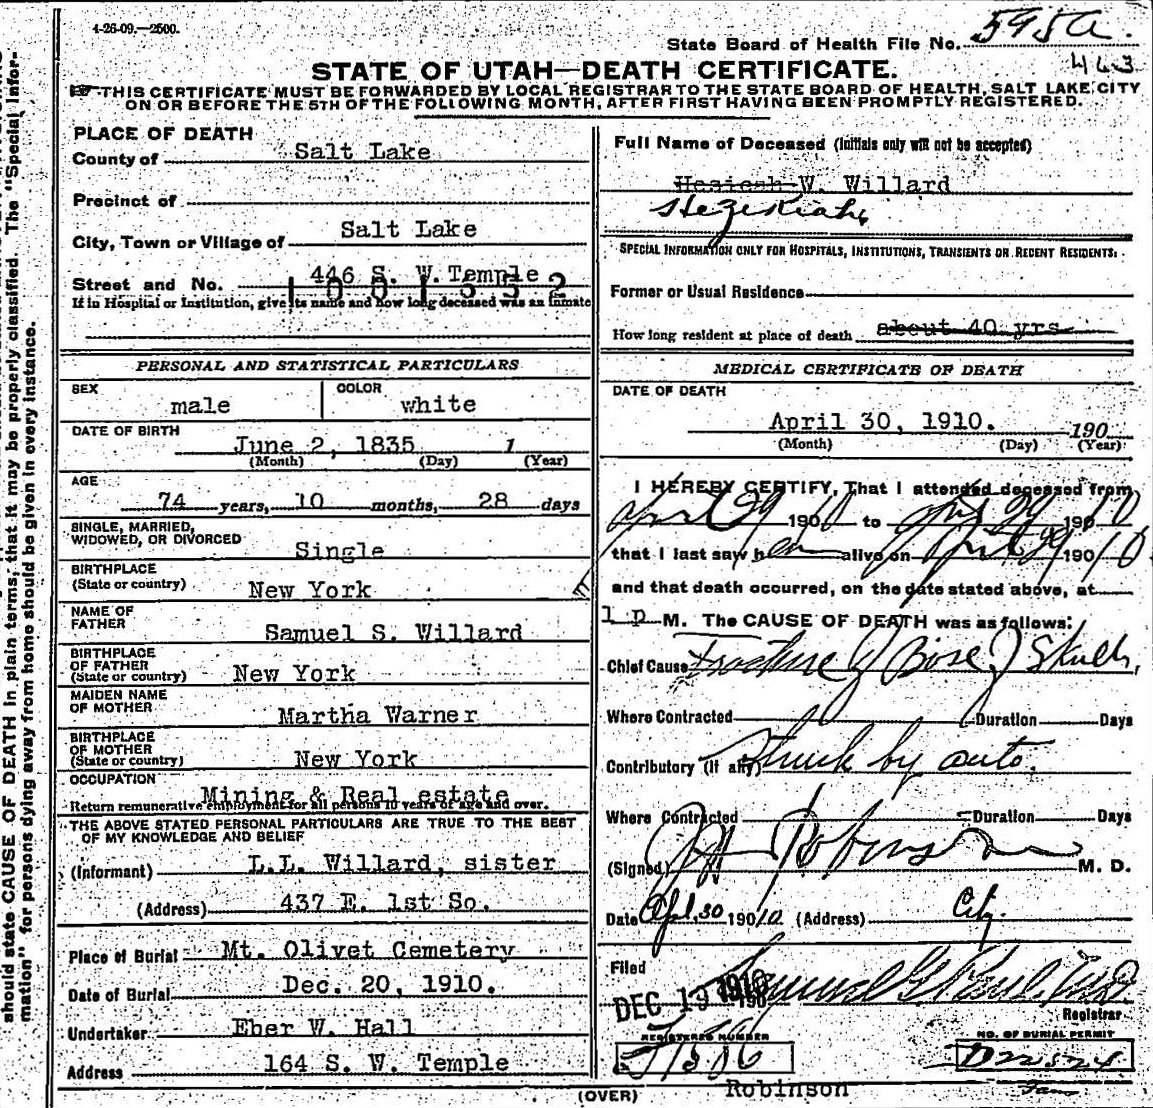 4-26-09.—2500.
State Board of Health File No. 595a.
443
STATE OF UTAH—DEATH CERTIFICATE.
THIS CERTIFICATE MUST BE FORWARDED BY LOCAL REGISTRAR TO THE STATE BOARD OF HEALTH, SALT LAKE CITY
ON OR BEFORE THE 5TH OF THE FOLLOWING MONTH, AFTER FIRST HAVING BEEN PROMPTLY REGISTERED.
should state CAUSE OF DEATH in plain terms, that it may be properly classified. The "Special Infor-
mation" for persons dying away from home should be given in every instance.
PLACE OF DEATH
County of Salt Lake
Precinct of
City, Town or Village of Salt Lake
Street and No. 446 S. W. Temple
1001352
If in Hospital or Institution, give its name and how long deceased was an inmate
PERSONAL AND STATISTICAL PARTICULARS
SEX COLOR
male white
DATE OF BIRTH
June 2, 1835 1
(Month) (Day) (Year)
AGE
74 years, 10 months, 28 days
SINGLE, MARRIED,
WIDOWED, OR DIVORCED
Single
BIRTHPLACE
(State or country) New York
NAME OF
FATHER
Samuel S. Willard
BIRTHPLACE
OF FATHER
(State or country) New York
MAIDEN NAME
OF MOTHER
Martha Warner
BIRTHPLACE
OF MOTHER
(State or country) New York
OCCUPATION
Mining & Real estate
Return remunerative employment for all persons 10 years of age and over.
THE ABOVE STATED PERSONAL PARTICULARS ARE TRUE TO THE BEST
OF MY KNOWLEDGE AND BELIEF
(Informant) L.L. Willard, sister
(Address) 437 E. 1st So.
Place of Burial Mt. Olivet Cemetery
Date of Burial Dec. 20, 1910.
Undertaker Eber W. Hall
Address 164 S. W. Temple
Full Name of Deceased (Initials only will not be accepted)
Hesicah W. Willard
Hezekiah
SPECIAL INFORMATION ONLY FOR HOSPITALS, INSTITUTIONS, TRANSIENTS OR RECENT RESIDENTS:
Former or Usual Residence
How long resident at place of death about 40 yrs
MEDICAL CERTIFICATE OF DEATH
DATE OF DEATH
April 30, 1910. 190
(Month) (Day) (Year)
I HEREBY CERTIFY, That I attended deceased from
April 29 1910 to April 29 190 10
that I last saw h alive on April 29 190 10
and that death occurred, on the date stated above, at
1 p M. The CAUSE OF DEATH was as follows:
Chief Cause Fracture of Base of Skull,
Where Contracted Duration Days
Contributory (if any) Struck by auto.
Where Contracted Duration Days
(Signed) Robinson M. D.
Date Apl. 30 190 10 (Address) City.
Filed
DEC 19 1910 190 Samuel G. Paul, MD
Registrar
REGISTERED NUMBER NO. OF BURIAL PERMIT
D22524
Robinson
(OVER)